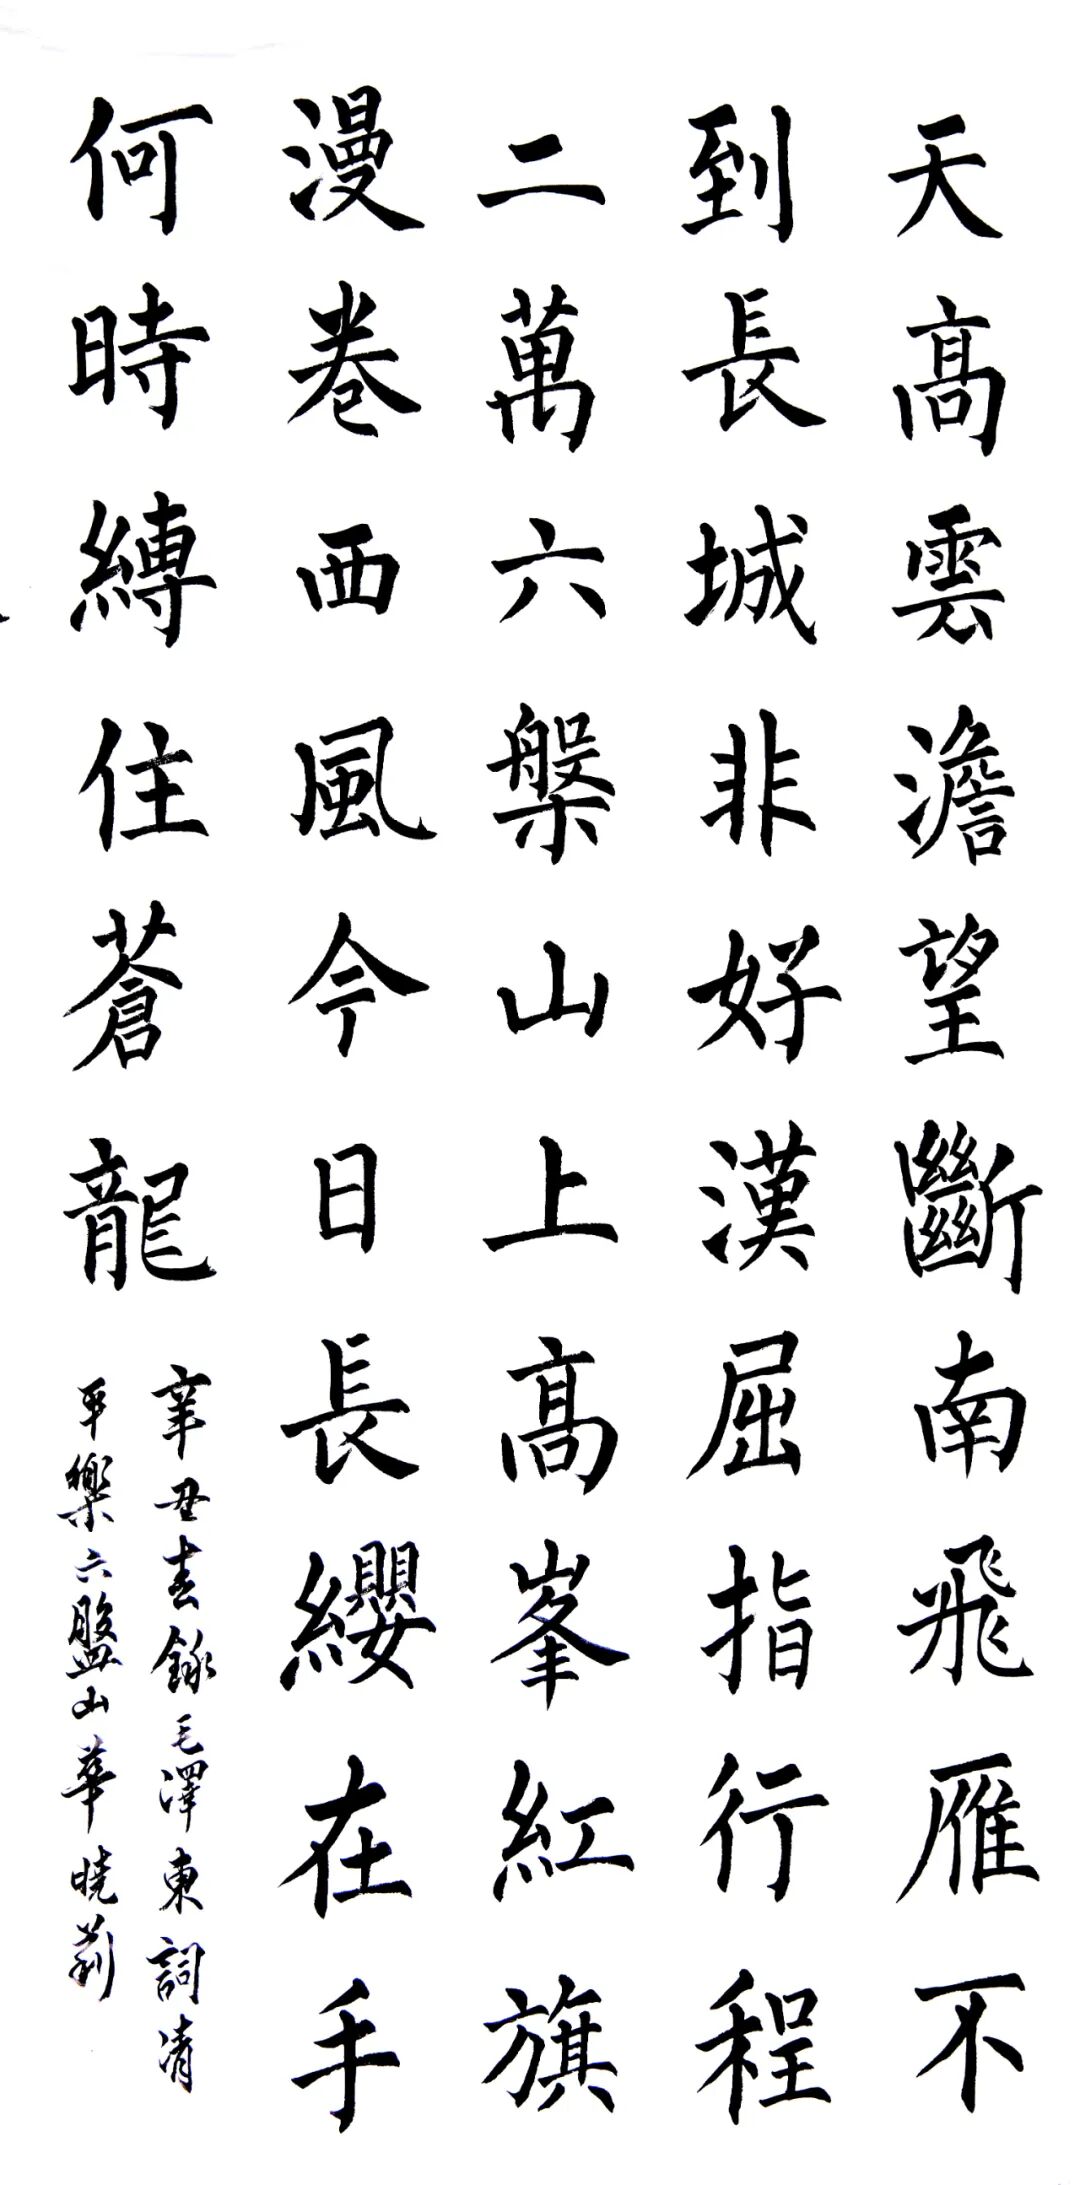 天高雲澹望斷南飛雁不
到長城非好漢屈指行程
二萬六槃山上高峯紅旗
漫卷西風今日長纓在手
何時縛住蒼龍
辛丑春錄毛澤東詞清
平樂六盤山華曉莉